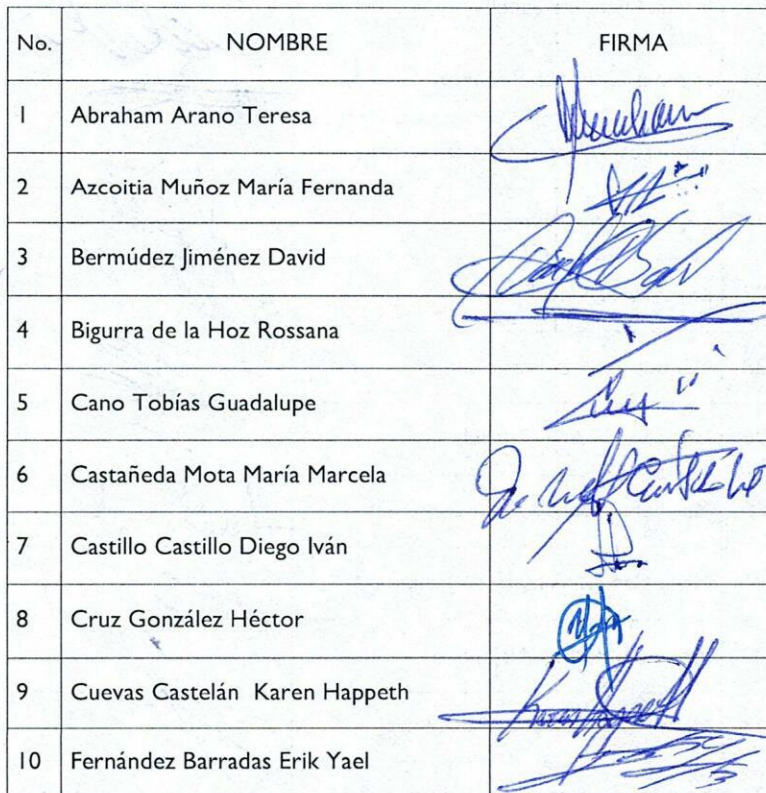 No. NOMBRE FIRMA
1 Abraham Arano Teresa
2 Azcoitia Muñoz María Fernanda
3 Bermúdez Jiménez David
4 Bigurra de la Hoz Rossana
5 Cano Tobías Guadalupe
6 Castañeda Mota María Marcela
7 Castillo Castillo Diego Iván
8 Cruz González Héctor
9 Cuevas Castelán Karen Happeth
10 Fernández Barradas Erik Yael